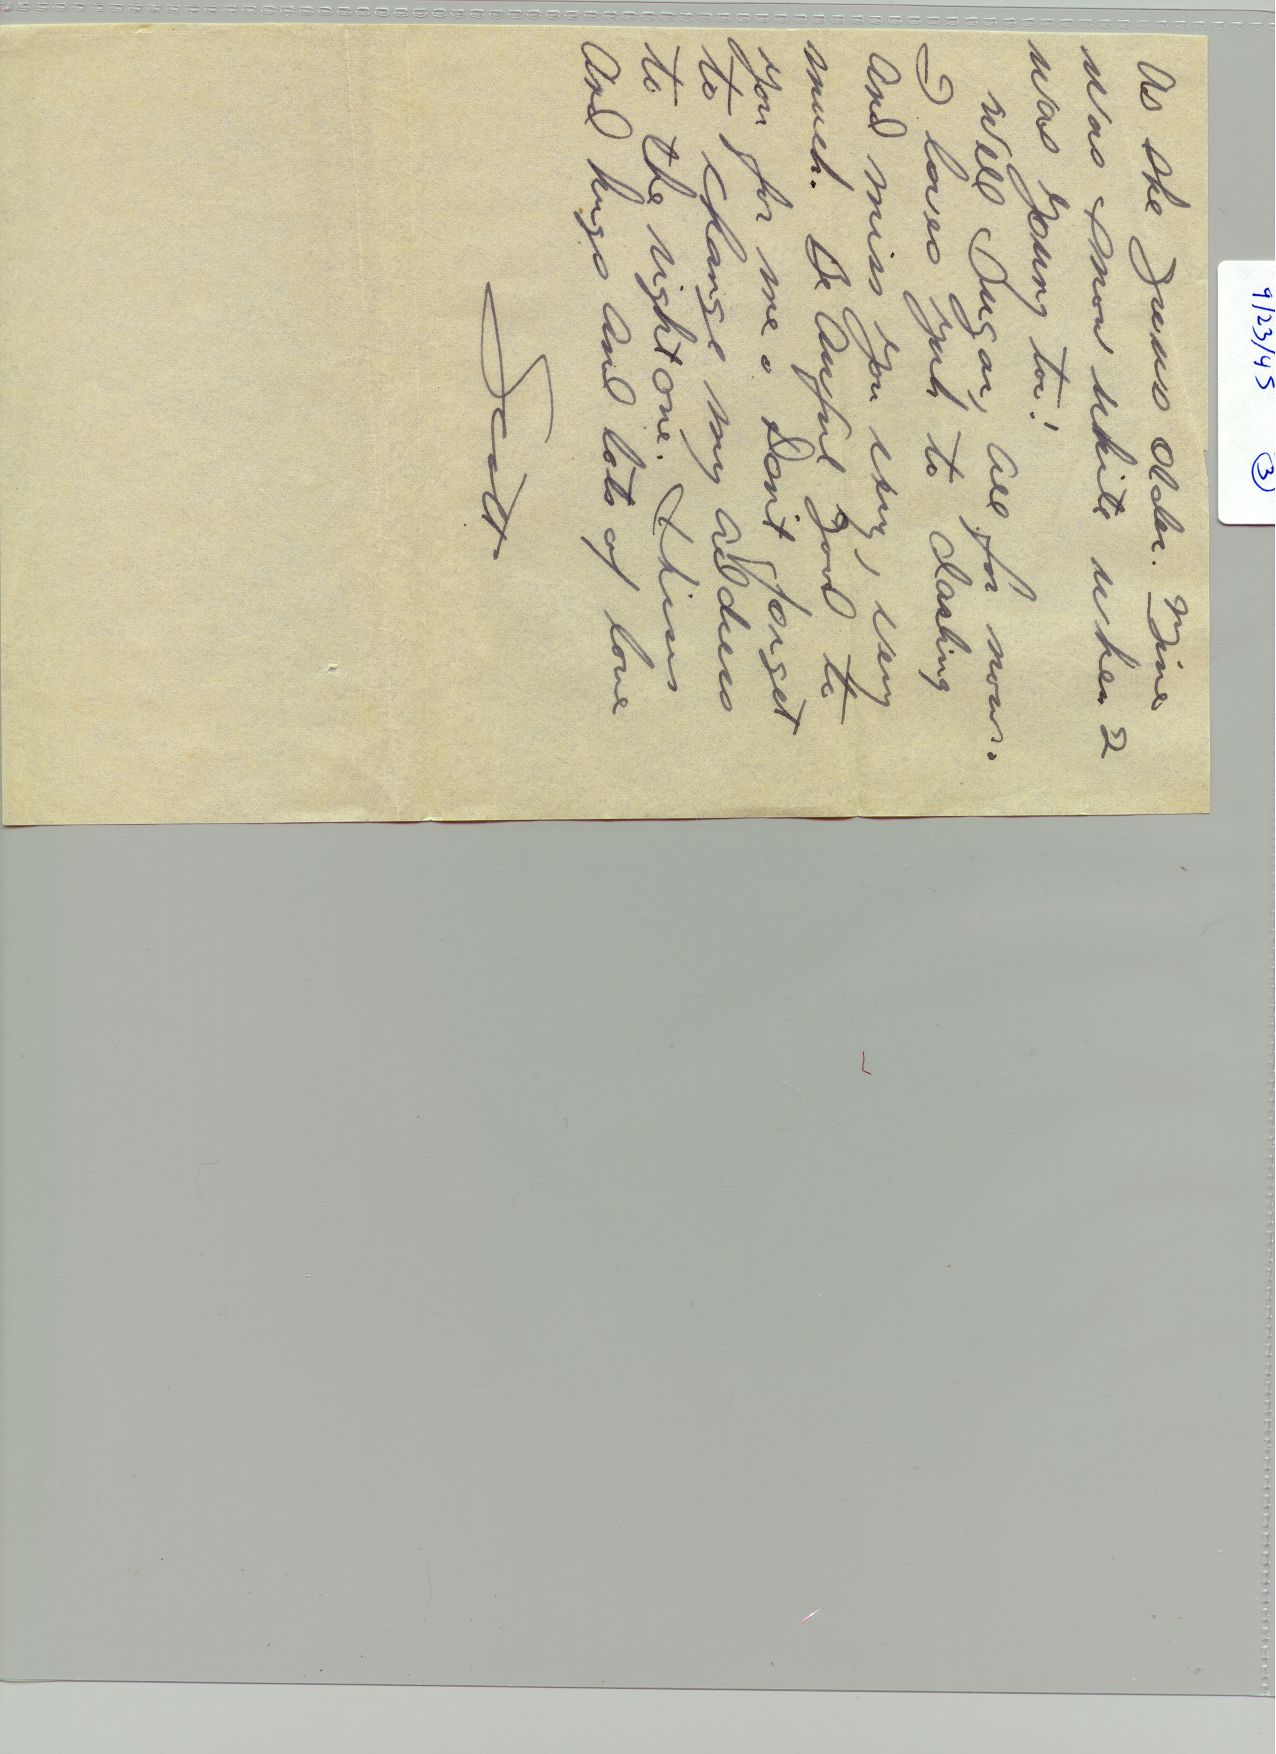 9/23/45 ③
as she grows older. Mine
was snow white when I
was young too!
Well Sugar, all for now.
I loves yuh to darling
and miss you very, very
much. Be awful good to
you for me. Don't forget
to change my address
to the right one. Kisses
and hugs and lots of love
Scott